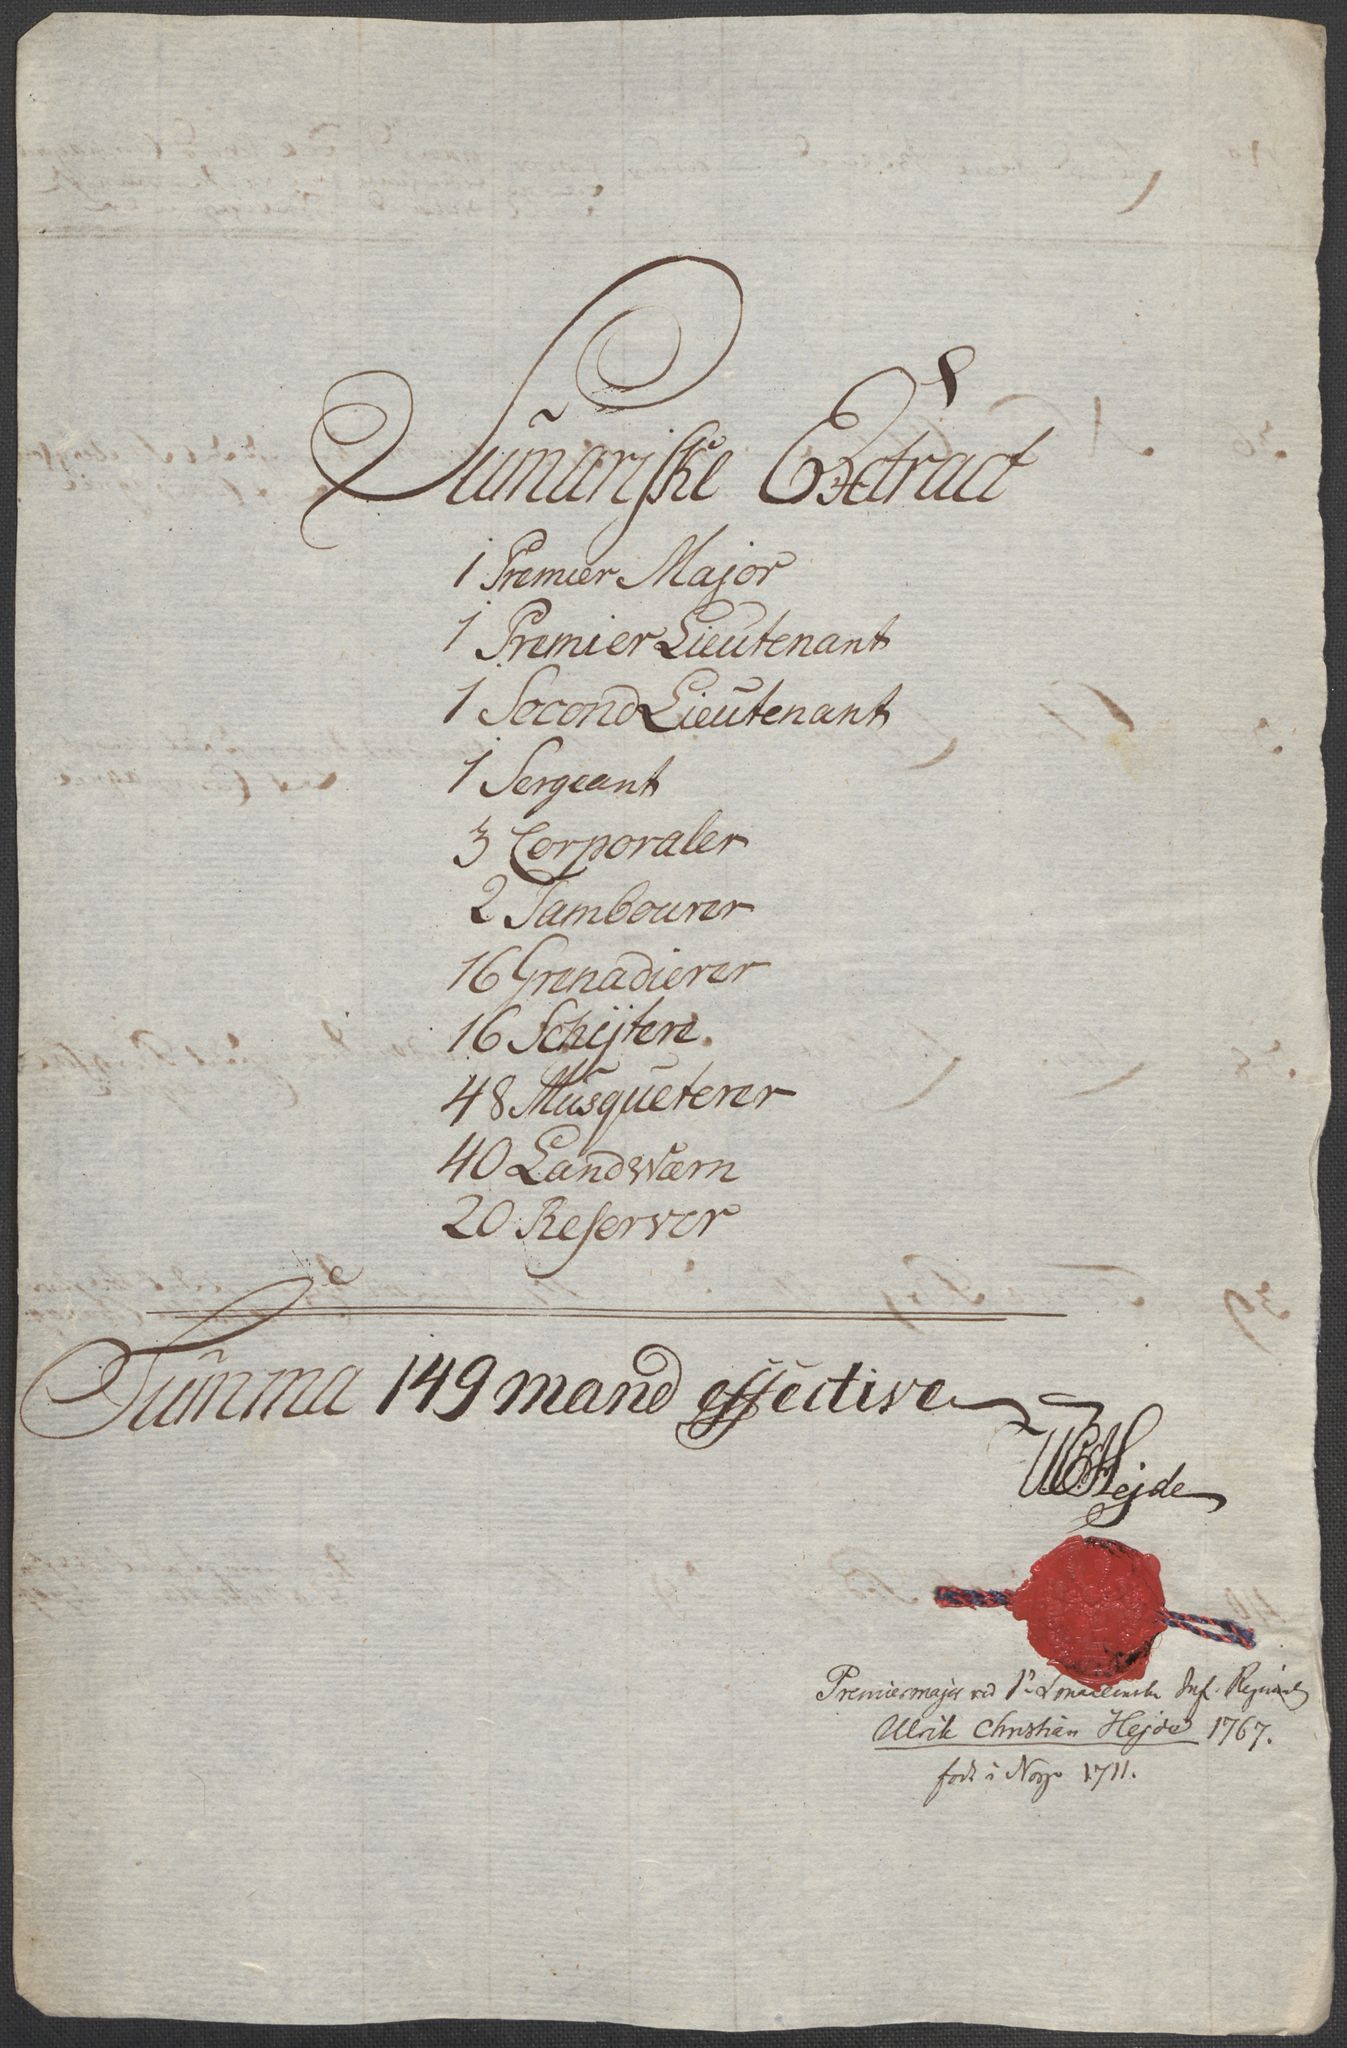 Sum̃ariske Extract
1 Premier Major
1 Premier Lieutenant
1 Second Lieutenant
1 Sergeant
3 Corporaler
2 Tambourer
16 Grenadierer
16 Schÿtere.
48 Musqueterer
40 Landværn
20 Reserver
Summa 149 mand effective
UCHejde
Premiermajor ved 1ste Inf. Regiment
Ulrik Christian Hejde 1767.
født i Norge 1711.